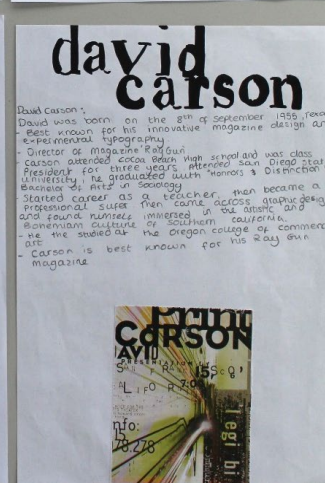 david
carson
David Carson:
David was born on the 8th of September 1956, Texa
- Best known for his innovative magazine design an
experimental typography
- Director of Magazine Ray Gun
- Carson attended Cocoa Beach High school and was class
President for three years. Attended San Diego stat
university, he graduated with "Honors & Distinction
Bachelor of Arts in Sociology
- Started career as a teacher, then became a
professional surfer then came across graphic desig
and found himself immersed in the artistic and
Bohemian culture of Southern California.
- He the studied at the Oregon college of commerc
art
- Carson is best known for his Ray Gun
magazine
print
CARSON
AVID
PRESENTATION
15,
7:00
nfo:
15
78.278
legi bi